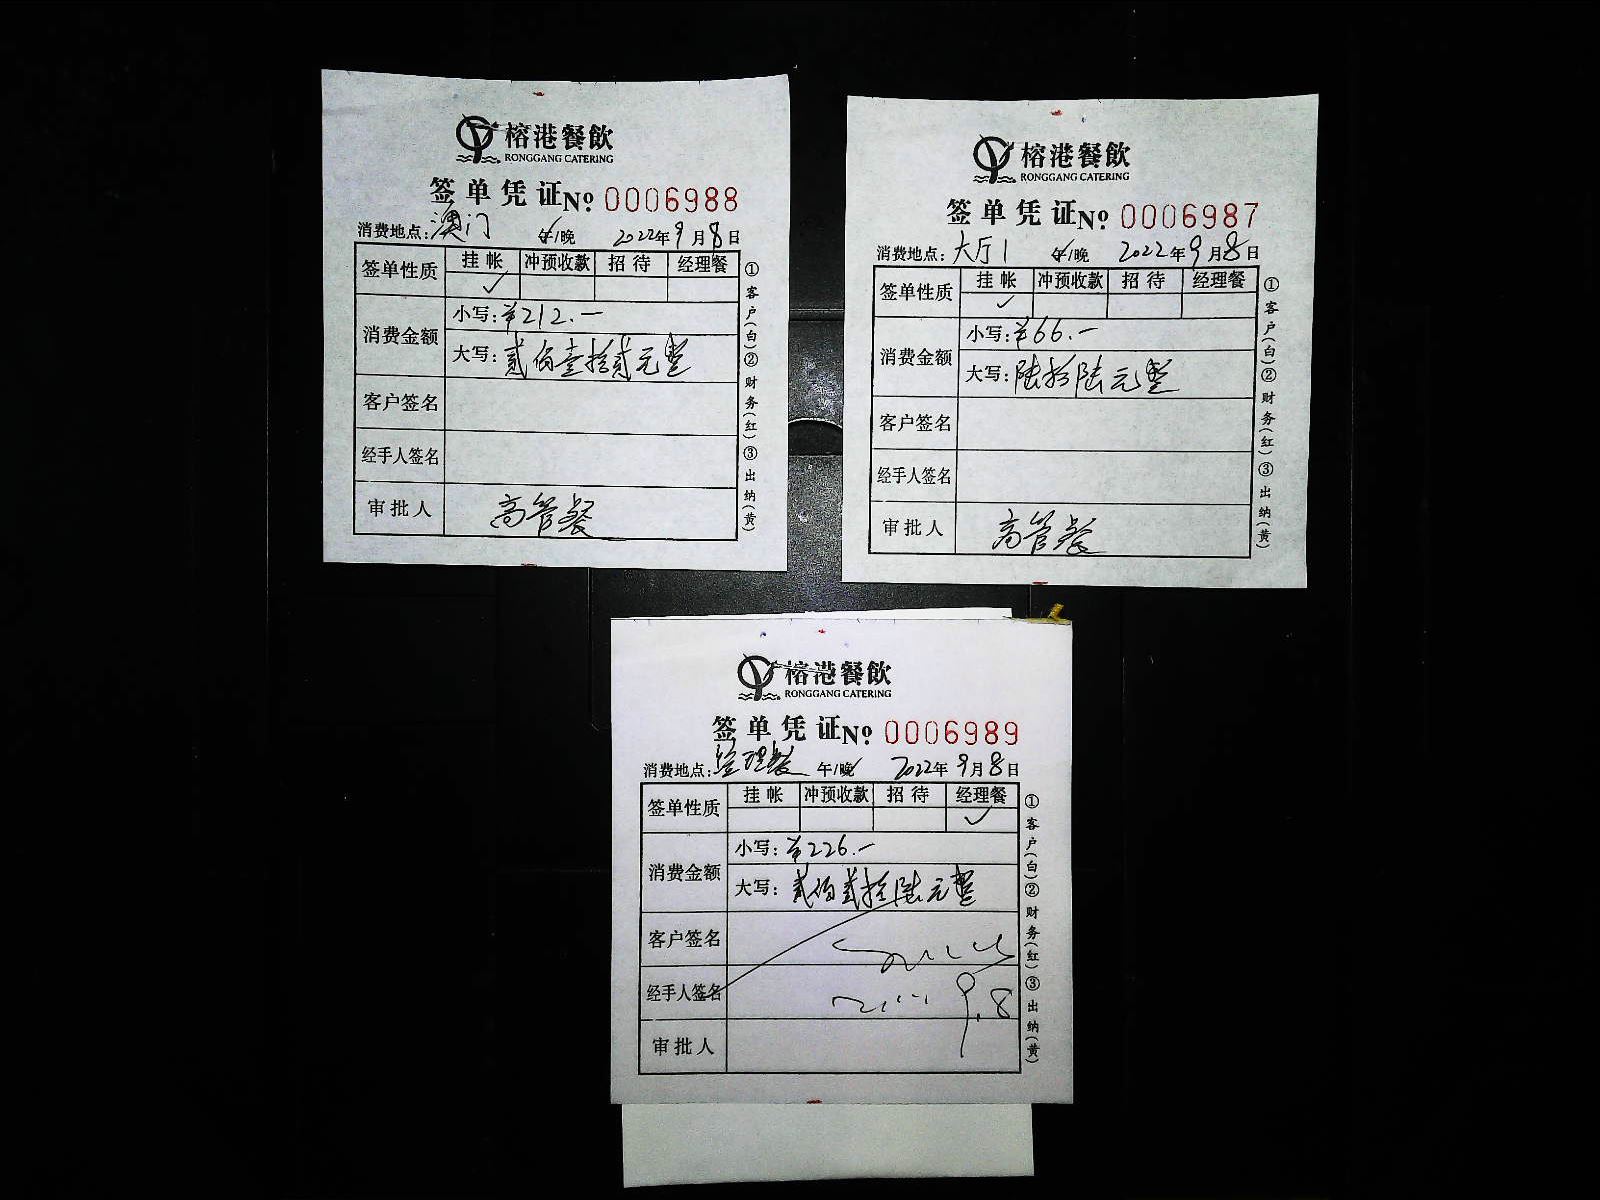 榕港餐飲
RONGGANG CATERING
签单凭证 №: 0006988
消费地点: 澳门 午/晚 2022年9月8日
签单性质 挂帐 冲预收款 招待 经理餐
✓
消费金额 小写: ¥212.一
大写: 贰佰壹拾贰元整
客户签名
经手人签名
审批人 高管餐
①客户(白)②财务(红)③出纳(黄)
榕港餐飲
RONGGANG CATERING
签单凭证 №: 0006987
消费地点: 大厅1 午/晚 2022年9月8日
签单性质 挂帐 冲预收款 招待 经理餐
✓
消费金额 小写: ¥66.一
大写: 陆拾陆元整
客户签名
经手人签名
审批人 高管餐
①客户(白)②财务(红)③出纳(黄)
榕港餐飲
RONGGANG CATERING
签单凭证 №: 0006989
消费地点: 经理餐 午/晚 2022年9月8日
签单性质 挂帐 冲预收款 招待 经理餐
✓
消费金额 小写: ¥226.一
大写: 贰佰贰拾陆元整
客户签名
经手人签名 9.8
审批人
①客户(白)②财务(红)③出纳(黄)